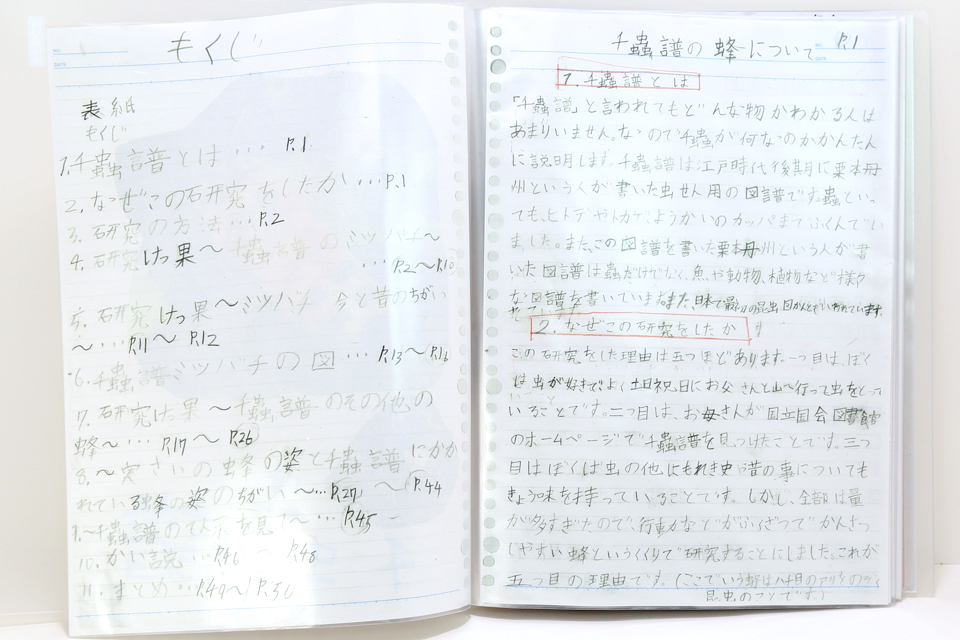 もくじ
表紙
もくじ
1.千蟲譜とは … P.1
2.なぜこの研究をしたか…P.1
3.研究の方法…P.2
4.研究けっ果〜千蟲譜のミツバチ〜
…P.2〜P.10
5.研究けっ果〜ミツバチ 今と昔のちがい
〜…P.11〜P.12
6.千蟲譜ミツバチの図…P.13〜P.16
7.研究けっ果〜千蟲譜のその他の
蜂〜…P.17〜P.26
8.〜実さいの蜂の姿と千蟲譜にかか
れている蜂の姿のちがい〜…P.27〜P.44
9.〜千蟲譜の を見て〜…P.45
10. かい説…P.46〜P.48
11.まとめ…P.49〜P.50
千蟲譜の蜂について P.1
1.千蟲譜とは
「千蟲譜」と言われてもどんな物かわかる人は
あまりいません。なので千蟲が何なのかかんたん
に説明します。千蟲譜は江戸時代後期に栗本丹
州という人が書いた虫せん用の図譜です。蟲といっ
ても、ヒトデやトカゲ、ようかいのカッパまでふくんでい
ました。また、この図譜を書いた栗本丹州という人が書
いた図譜は蟲だけでなく、魚や動物、植物など様々
な図譜を書いています。また、日本で最初の昆虫図かんとも いわれています。
2.なぜこの研究をしたか
この研究をした理由は五つほどあります。一つ目は、ぼく
は虫が好きでよく土日祝日にお父さんと山へ行って虫をとって
いることです。二つ目は、お母さんが国立国会図書館
のホームページで千蟲譜を見つけたことです。三つ
目はぼくは虫の他にもれき史や昔の事についても
きょう味を持っていることです。しかし、全部は量
が多すぎたので、行動などがふくざつでかんさつ
しやすい蜂というくくりで研究することにしました。これが
五つ目の理由です。(ここでいう蜂はハチ目のアリをのぞく
昆虫のことです)